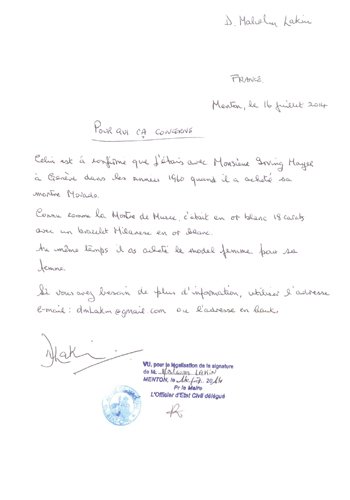 D. Malcolm Lakin
FRANCE
Menton, le 16 juillet 2014
POUR QUI ÇA CONCERNE
Celui est à confirme que j'étais avec Monsieur Irving
à Genève dans les années 1960 quand il a acheté sa
montre Movado.
Connu comme la Montre de Musée, c'était en or blanc 18 carats
avec un bracelet Milanese en or blanc.
Au même temps il as acheté le model femme pour sa
femme.
Si vous avez besoin de plus d'information, utiliser l'adresse
e-mail: dmlakin@gmail.com ou l'adresse en haut.
DLakin
VU, pour la légalisation de la signature
de M. Malcolm LAKIN
MENTON, le 2014
Pr le Maire
L'Officier d'Etat Civil délégué